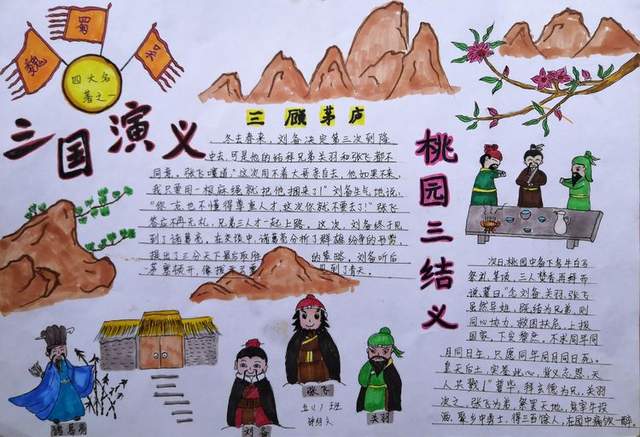 魏
蜀
吴
四大名
著之一
三国演义
三顾茅庐
冬去春来，刘备决定第三次到隆
中去，可是他的结拜兄弟关羽和张飞都不
同意。张飞嚷道："这次用不着大哥亲自去，他如果不来，
我只要用一根麻绳就把他捆来了!"刘备生气地说：
"你一点也不懂得尊重人才，这次你就不要去了!"张飞
答应不再无礼，兄弟三人才一起上路。这次，刘备终于见
到了诸葛亮，在交谈中，诸葛亮分析了群雄纷争的形势，
提出了三分天下最后取胜的策略，刘备听后
茅塞顿开，像拨云见
到了青天。
桃园三结义
次日，桃园中备下乌牛白马
祭礼等项，三人焚香再拜而
说誓曰："念刘备、关羽、张飞，
虽然异姓，既结为兄弟，则
同心协力，救困扶危，上报
国家，下安黎民，不求同年同
月同日生，只愿同年同月同日死。
皇天后土，实鉴此心。背义忘恩，天
人共戮!"誓毕，拜玄德为兄，关羽
次之，张飞为弟。祭罢天地，复宰牛设
酒，聚乡中勇士，得三百余人，在园中痛饮一醉。
诸葛亮
刘备
张飞
关羽